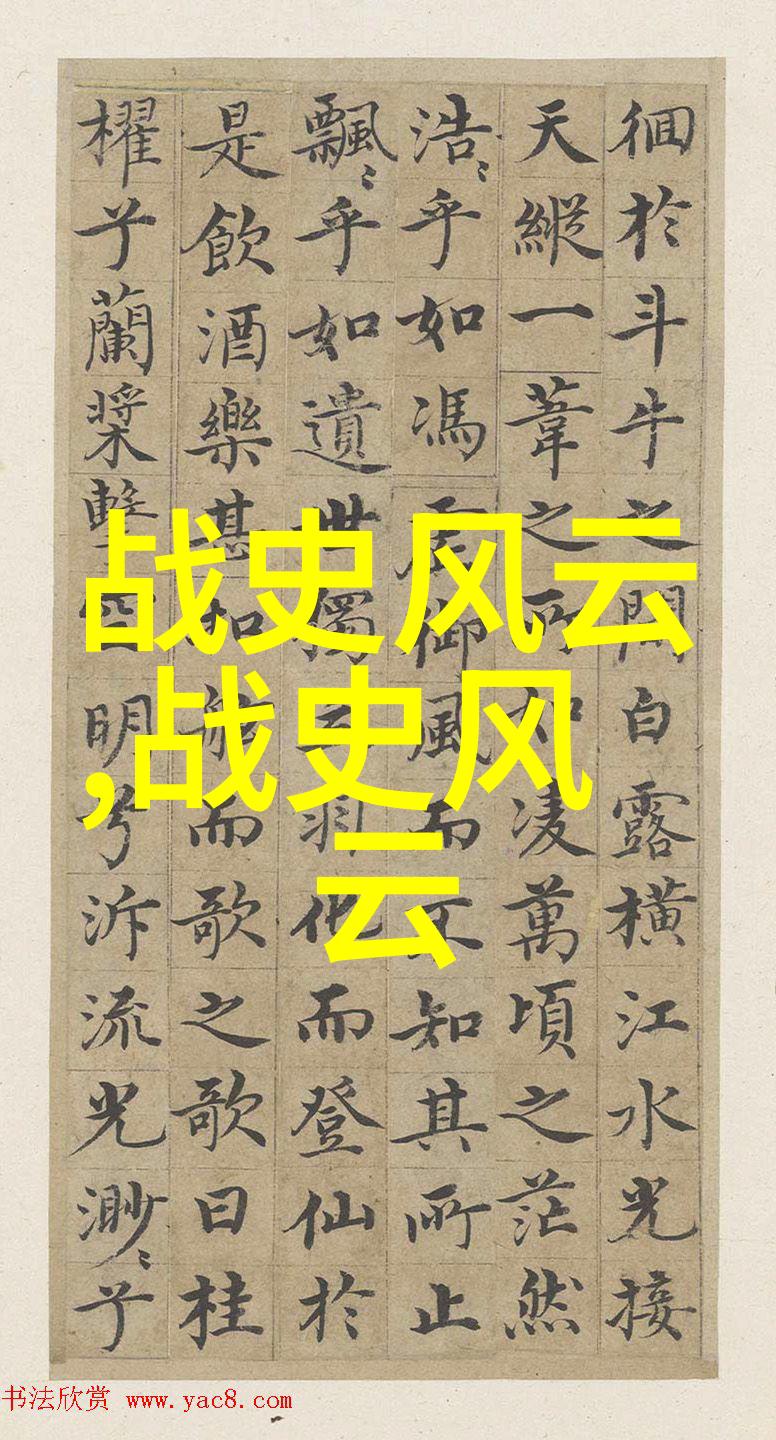 徊於斗牛之間白露橫江水光接
天縱一葦之所如凌萬頃之茫然
浩〻乎如馮虛御風而不知其所止
飄〻乎如遺世獨立羽化而登仙於
是飲酒樂甚扣舷而歌之歌曰桂
櫂兮蘭槳擊空明兮泝流光渺〻兮
战史风云
,战史风
云
书法欣赏 www.yac8.com